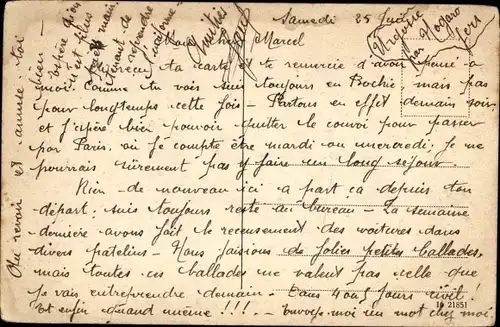 Samedi 25 Juin
Mon cher Marcel
J'ai reçu ta carte et te remercie d'avoir pensé à
moi. Comme tu vois suis toujours en Bochie mais pas
pour longtemps cette fois - Partons en effet demain soir
et j'espère bien pouvoir quitter le convoi pour passer
par Paris, où je compte être mardi ou mercredi; je ne
pourrais sûrement pas y faire un long séjour.
Rien de nouveau ici à part ça depuis ton
départ; suis toujours resté au bureau - La semaine
dernière avons fait le recensement des voitures dans
divers patelins - Nous faisions de jolies petites ballades,
mais toutes ces ballades ne valent pas celle que
je vais entreprendre demain - Dans 4 ou 5 jours civil!
Et enfin quand même!!! - Envoye-moi un mot chez moi.
Au revoir et amuse-toi
bien. J'espère bien
main
avant de reprendre
Amitiés
par Nogaro
Gers
16 21851